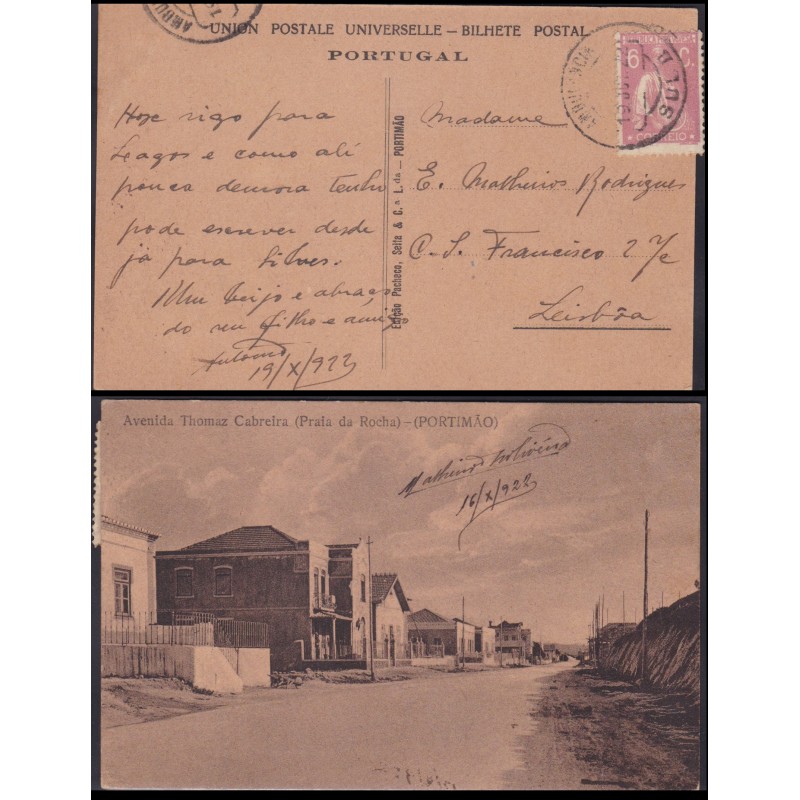 UNION POSTALE UNIVERSELLE — BILHETE POSTAL
PORTUGAL
AMBU
AMBULANCIA
SUL
6 C.
CORREIO
Hoje sigo para
Leagos e como ali
pouca demora tenho
pode escrever desde
já para Silves.
Um beijo e abraço
do seu filho e amigo
Antonio
19/X/922
Edição Pacheco, Seita & C.ª L.da — PORTIMÃO
Madame
E. Matheiros Rodrigues
C. S. Francisco 2
Leisbôa
Avenida Thomaz Cabreira (Praia da Rocha) — (PORTIMÃO)
16/X/922